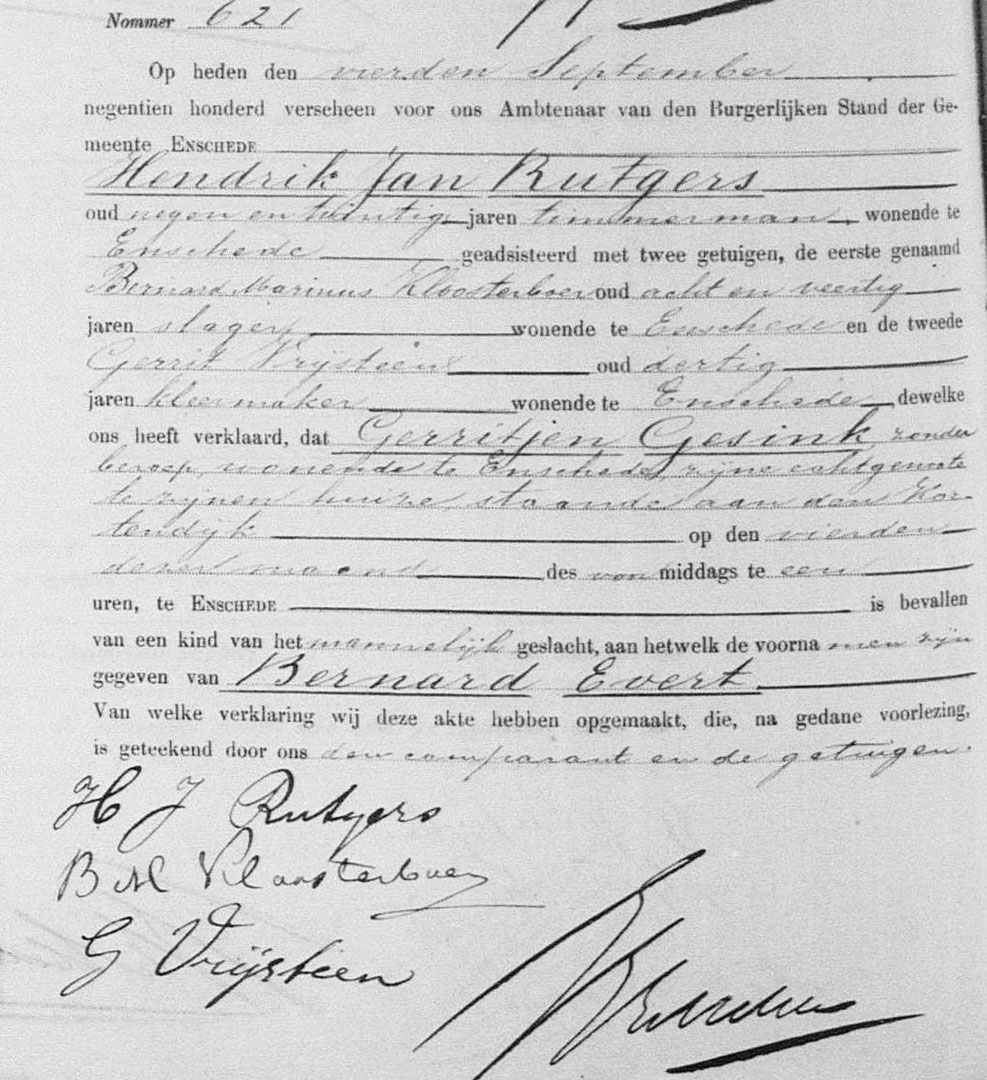 Nommer 621
Op heden den vierden September
negentien honderd verscheen voor ons Ambtenaar van den Burgerlijken Stand der Ge-
meente ENSCHEDE
Hendrik Jan Rutgers
oud negen en twintig jaren timmerman, wonende te
Enschede geadsisteerd met twee getuigen, de eerste genaamd
Bernard Marinus Kloosterboer oud acht en veertig
jaren slager, wonende te Enschede en de tweede
Gerrit Vrijsteen oud dertig
jaren kleermaker wonende te Enschede, dewelke
ons heeft verklaard, dat Gerritjen Gesink, zonder
beroep, wonende te Enschede, zijne echtgenoote
te zijnen huize, staande aan den Kor-
tendijk op den vierden
dezer maand des voormiddags te een
uren, te ENSCHEDE is bevallen
van een kind van het mannelijk geslacht, aan hetwelk de voornamen zijn
gegeven van Bernard Evert.
Van welke verklaring wij deze akte hebben opgemaakt, die, na gedane voorlezing,
is geteekend door ons den comparant en de getuigen.
H J Rutgers
B M Kloosterboer
G Vrijsteen